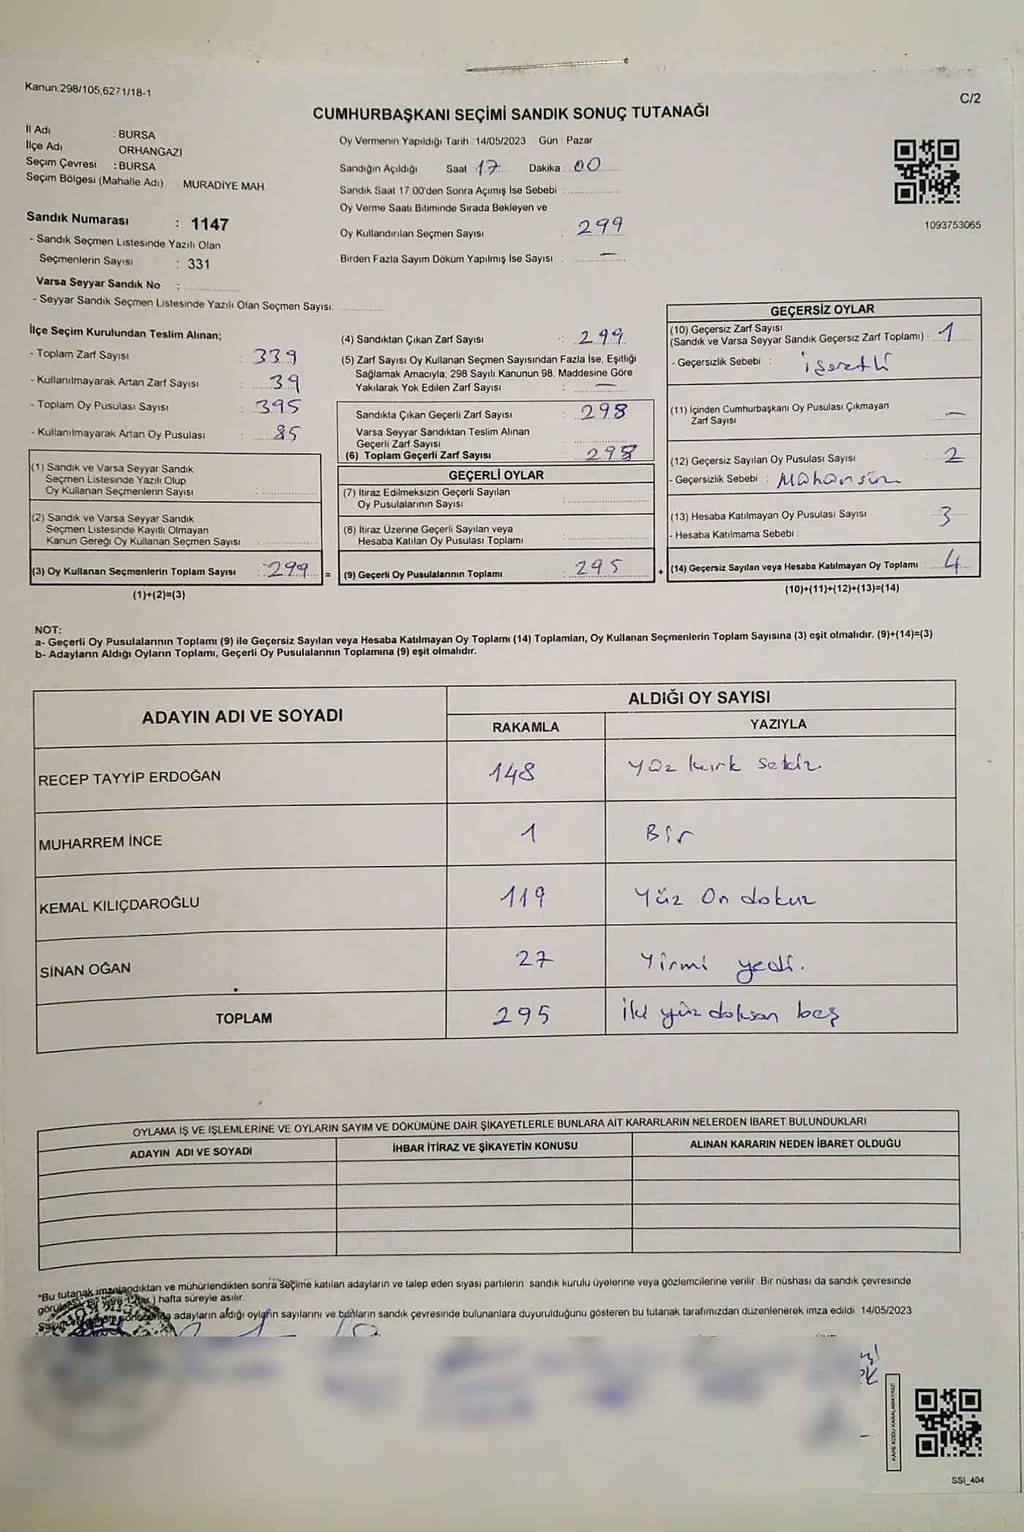 Kanun 298/105,6271/18-1
C/2
CUMHURBAŞKANI SEÇİMİ SANDIK SONUÇ TUTANAĞI
İl Adı : BURSA
İlçe Adı ORHANGAZİ
Seçim Çevresi : BURSA
Seçim Bölgesi (Mahalle Adı) MURADİYE MAH.
Sandık Numarası : 1147
- Sandık Seçmen Listesinde Yazılı Olan
Seçmenlerin Sayısı : 331
Varsa Seyyar Sandık No :
- Seyyar Sandık Seçmen Listesinde Yazılı Olan Seçmen Sayısı:
Oy Vermenin Yapıldığı Tarih : 14/05/2023 Gün : Pazar
Sandığın Açıldığı Saat : 17 Dakika : 00
Sandık Saat 17.00'den Sonra Açımış İse Sebebi :
Oy Verme Saati Bitiminde Sırada Bekleyen ve
Oy Kullandırılan Seçmen Sayısı : 299
Birden Fazla Sayım Döküm Yapılmış İse Sayısı : —
1093753065
İlçe Seçim Kurulundan Teslim Alınan;
- Toplam Zarf Sayısı : 339
- Kullanılmayarak Artan Zarf Sayısı : 39
- Toplam Oy Pusulası Sayısı : 395
- Kullanılmayarak Artan Oy Pusulası : 85
(1) Sandık ve Varsa Seyyar Sandık
Seçmen Listesinde Yazılı Olup
Oy Kullanan Seçmenlerin Sayısı :
(2) Sandık ve Varsa Seyyar Sandık
Seçmen Listesinde Kayıtlı Olmayan
Kanun Gereği Oy Kullanan Seçmen Sayısı :
(3) Oy Kullanan Seçmenlerin Toplam Sayısı : 299 =
(1)+(2)=(3)
(4) Sandıktan Çıkan Zarf Sayısı : 299
(5) Zarf Sayısı Oy Kullanan Seçmen Sayısından Fazla İse, Eşitliği
Sağlamak Amacıyla, 298 Sayılı Kanunun 98. Maddesine Göre
Yakılarak Yok Edilen Zarf Sayısı : —
Sandıkta Çıkan Geçerli Zarf Sayısı : 298
Varsa Seyyar Sandıktan Teslim Alınan
Geçerli Zarf Sayısı :
(6) Toplam Geçerli Zarf Sayısı : 298
GEÇERLİ OYLAR
(7) İtiraz Edilmeksizin Geçerli Sayılan
Oy Pusulalarının Sayısı :
(8) İtiraz Üzerine Geçerli Sayılan veya
Hesaba Katılan Oy Pusulası Toplamı :
(9) Geçerli Oy Pusulalarının Toplamı : 295 +
GEÇERSİZ OYLAR
(10) Geçersiz Zarf Sayısı
(Sandık ve Varsa Seyyar Sandık Geçersiz Zarf Toplamı) : 1
- Geçersizlik Sebebi : İşaretli
(11) İçinden Cumhurbaşkanı Oy Pusulası Çıkmayan
Zarf Sayısı : —
(12) Geçersiz Sayılan Oy Pusulası Sayısı : 2
- Geçersizlik Sebebi : Mühürsüz
(13) Hesaba Katılmayan Oy Pusulası Sayısı : 3
- Hesaba Katılmama Sebebi :
(14) Geçersiz Sayılan veya Hesaba Katılmayan Oy Toplamı : 4
(10)+(11)+(12)+(13)=(14)
NOT:
a- Geçerli Oy Pusulalarının Toplamı (9) ile Geçersiz Sayılan veya Hesaba Katılmayan Oy Toplamı (14) Toplamları, Oy Kullanan Seçmenlerin Toplam Sayısına (3) eşit olmalıdır. (9)+(14)=(3)
b- Adayların Aldığı Oyların Toplamı, Geçerli Oy Pusulalarının Toplamına (9) eşit olmalıdır.
ADAYIN ADI VE SOYADI ALDIĞI OY SAYISI
RAKAMLA YAZIYLA
RECEP TAYYİP ERDOĞAN 148 Yüz kırk sekiz
MUHARREM İNCE 1 Bir
KEMAL KILIÇDAROĞLU 119 Yüz On dokuz
SİNAN OĞAN 27 Yirmi yedi.
TOPLAM 295 İki yüz doksan beş
OYLAMA İŞ VE İŞLEMLERİNE VE OYLARIN SAYIM VE DÖKÜMÜNE DAİR ŞİKAYETLERLE BUNLARA AİT KARARLARIN NELERDEN İBARET BULUNDUKLARI
ADAYIN ADI VE SOYADI İHBAR İTİRAZ VE ŞİKAYETİN KONUSU ALINAN KARARIN NEDEN İBARET OLDUĞU
*Bu tutanak imzalandıktan ve mühürlendikten sonra seçime katılan adayların ve talep eden siyasi partilerin sandık kurulu üyelerine veya gözlemcilerine verilir. Bir nüshası da sandık çevresinde
hafta süreyle asılır.
adayların aldığı oyların sayılarını ve bunların sandık çevresinde bulunanlara duyurulduğunu gösteren bu tutanak tarafımızdan düzenlenerek imza edildi. 14/05/2023
KARE KODU KARALAMAYINIZ!
SSI_404